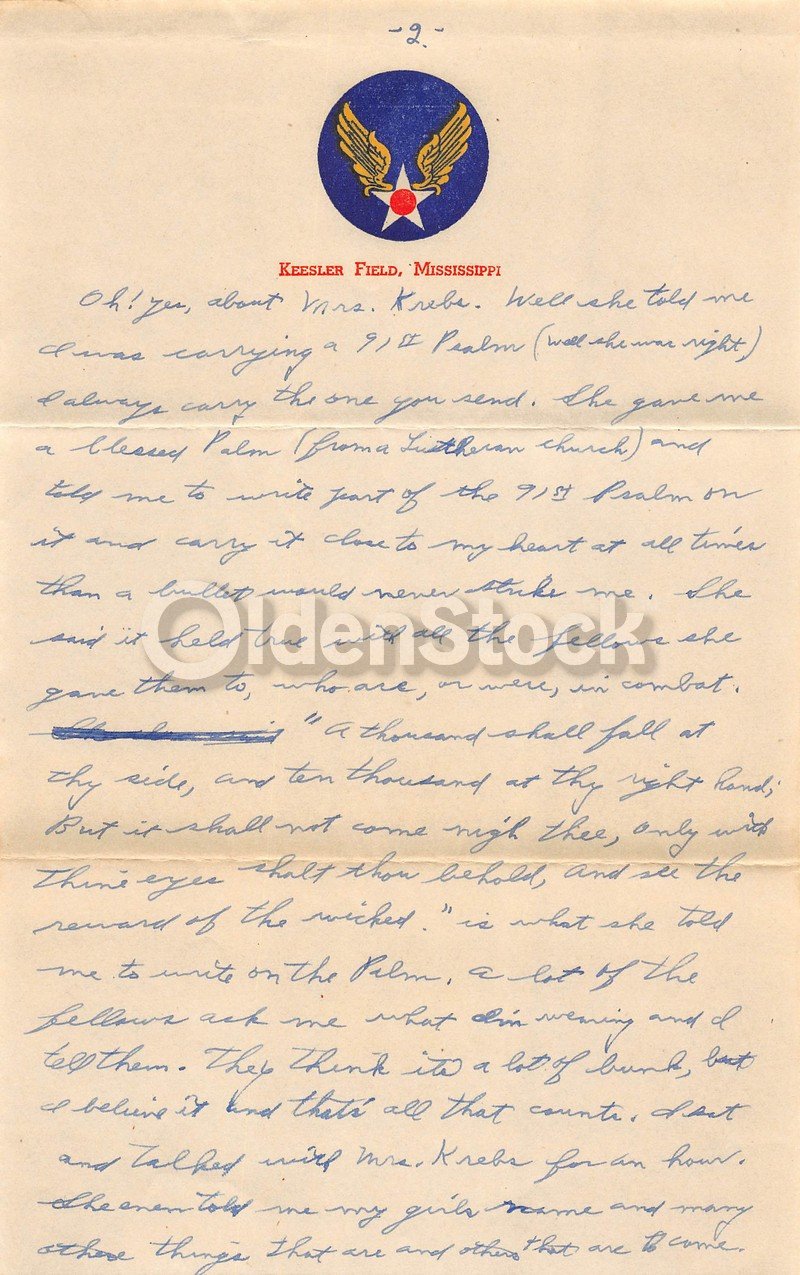 -2.-
KEESLER FIELD, MISSISSIPPI
Oh! yes, about Mrs. Krebs. Well she told me
I was carrying a 91st Psalm (well she was right)
I always carry the one you send. She gave me
a blessed Palm (from a Lutheran church) and
told me to write part of the 91st Psalm on
it and carry it close to my heart at all times
than a bullet would never strike me. She
said it held true with all the fellows she
OldenStock
gave them to, who are, or were, in combat.
"A thousand shall fall at
thy side, and ten thousand at thy right hand;
But it shall not come nigh thee, only with
thine eyes shalt thou behold, and see the
reward of the wicked." is what she told
me to write on the Palm. A lot of the
fellows ask me what I'm wearing and I
tell them. They think its a lot of bunk, but
I believe it and that's all that counts. I sat
and talked with Mrs. Krebs for an hour.
She even told me my girls name and many
other things that are and others that are to come.